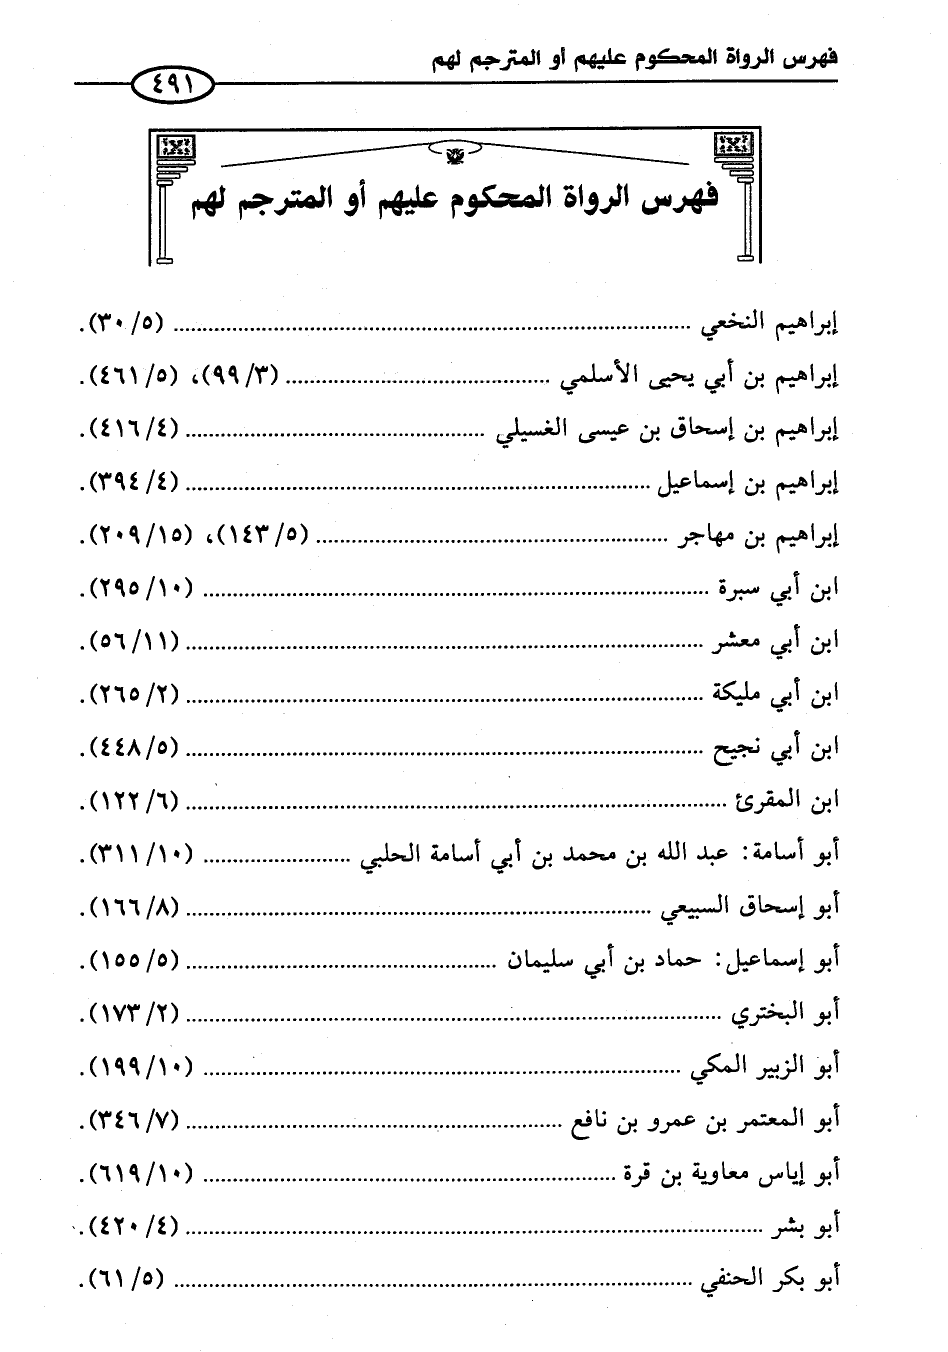 فهرس الرواة المحكوم عليهم أو المترجم لهم
٤٩١
فهرس الرواة المحكوم عليهم أو المترجم لهم
إبراهيم النخعي ........ (٣٠/٥).
إبراهيم بن أبي يحيى الأسلمي ........ (٩٩/٣)، (٤٦١/٥).
إبراهيم بن إسحاق بن عيسى الغسيلي ........ (٤١٦/٤).
إبراهيم بن إسماعيل ........ (٣٩٤/٤).
إبراهيم بن مهاجر ........ (١٤٣/٥)، (٢٠٩/١٥).
ابن أبي سبرة ........ (٢٩٥/١٠).
ابن أبي معشر ........ (٥٦/١١).
ابن أبي مليكة ........ (٢٦٥/٢).
ابن أبي نجيح ........ (٤٤٨/٥).
ابن المقرئ ........ (١٢٢/٦).
أبو أسامة: عبد الله بن محمد بن أبي أسامة الحلبي ........ (٣١١/١٠).
أبو إسحاق السبيعي ........ (١٦٦/٨).
أبو إسماعيل: حماد بن أبي سليمان ........ (١٥٥/٥).
أبو البختري ........ (١٧٣/٢).
أبو الزبير المكي ........ (١٩٩/١٠).
أبو المعتمر بن عمرو بن نافع ........ (٣٤٦/٧).
أبو إياس معاوية بن قرة ........ (٦١٩/١٠).
أبو بشر ........ (٤٢٠/٤).
أبو بكر الحنفي ........ (٦١/٥).